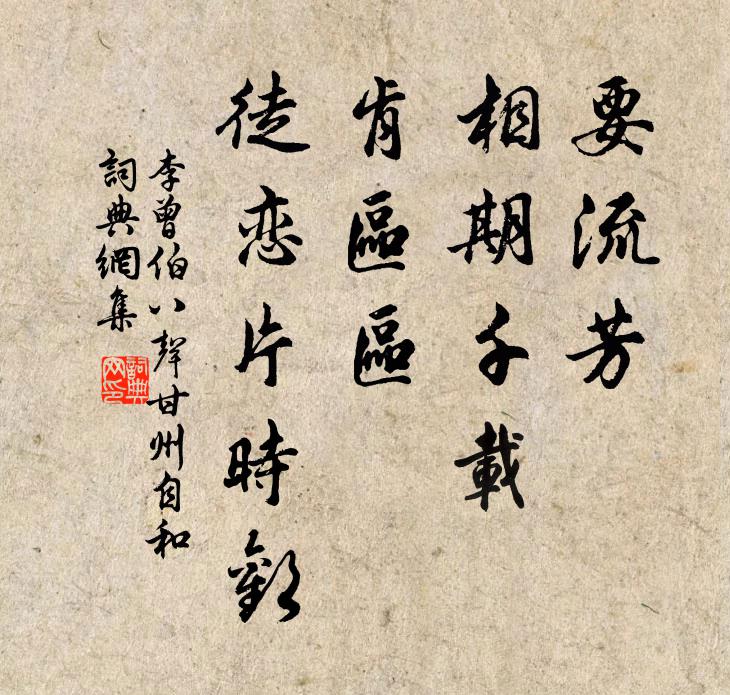 要流芳
相期千載
肯區區
徒恋片時歡
李曾伯八聲甘州自和
詞典網集
詞典網印